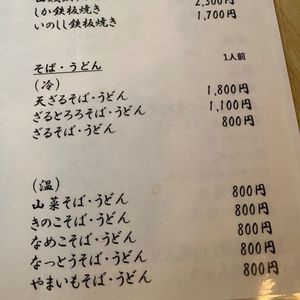 2,300円
しか鉄板焼き 1,700円
いのしし鉄板焼き
そば・うどん 1人前
(冷)
天ざるそば・うどん 1,800円
ざるとろろそば・うどん 1,100円
ざるそば・うどん 800円
(温)
山菜そば・うどん 800円
きのこそば・うどん 800円
なめこそば・うどん 800円
なっとうそば・うどん 800円
やまいもそば・うどん 800円